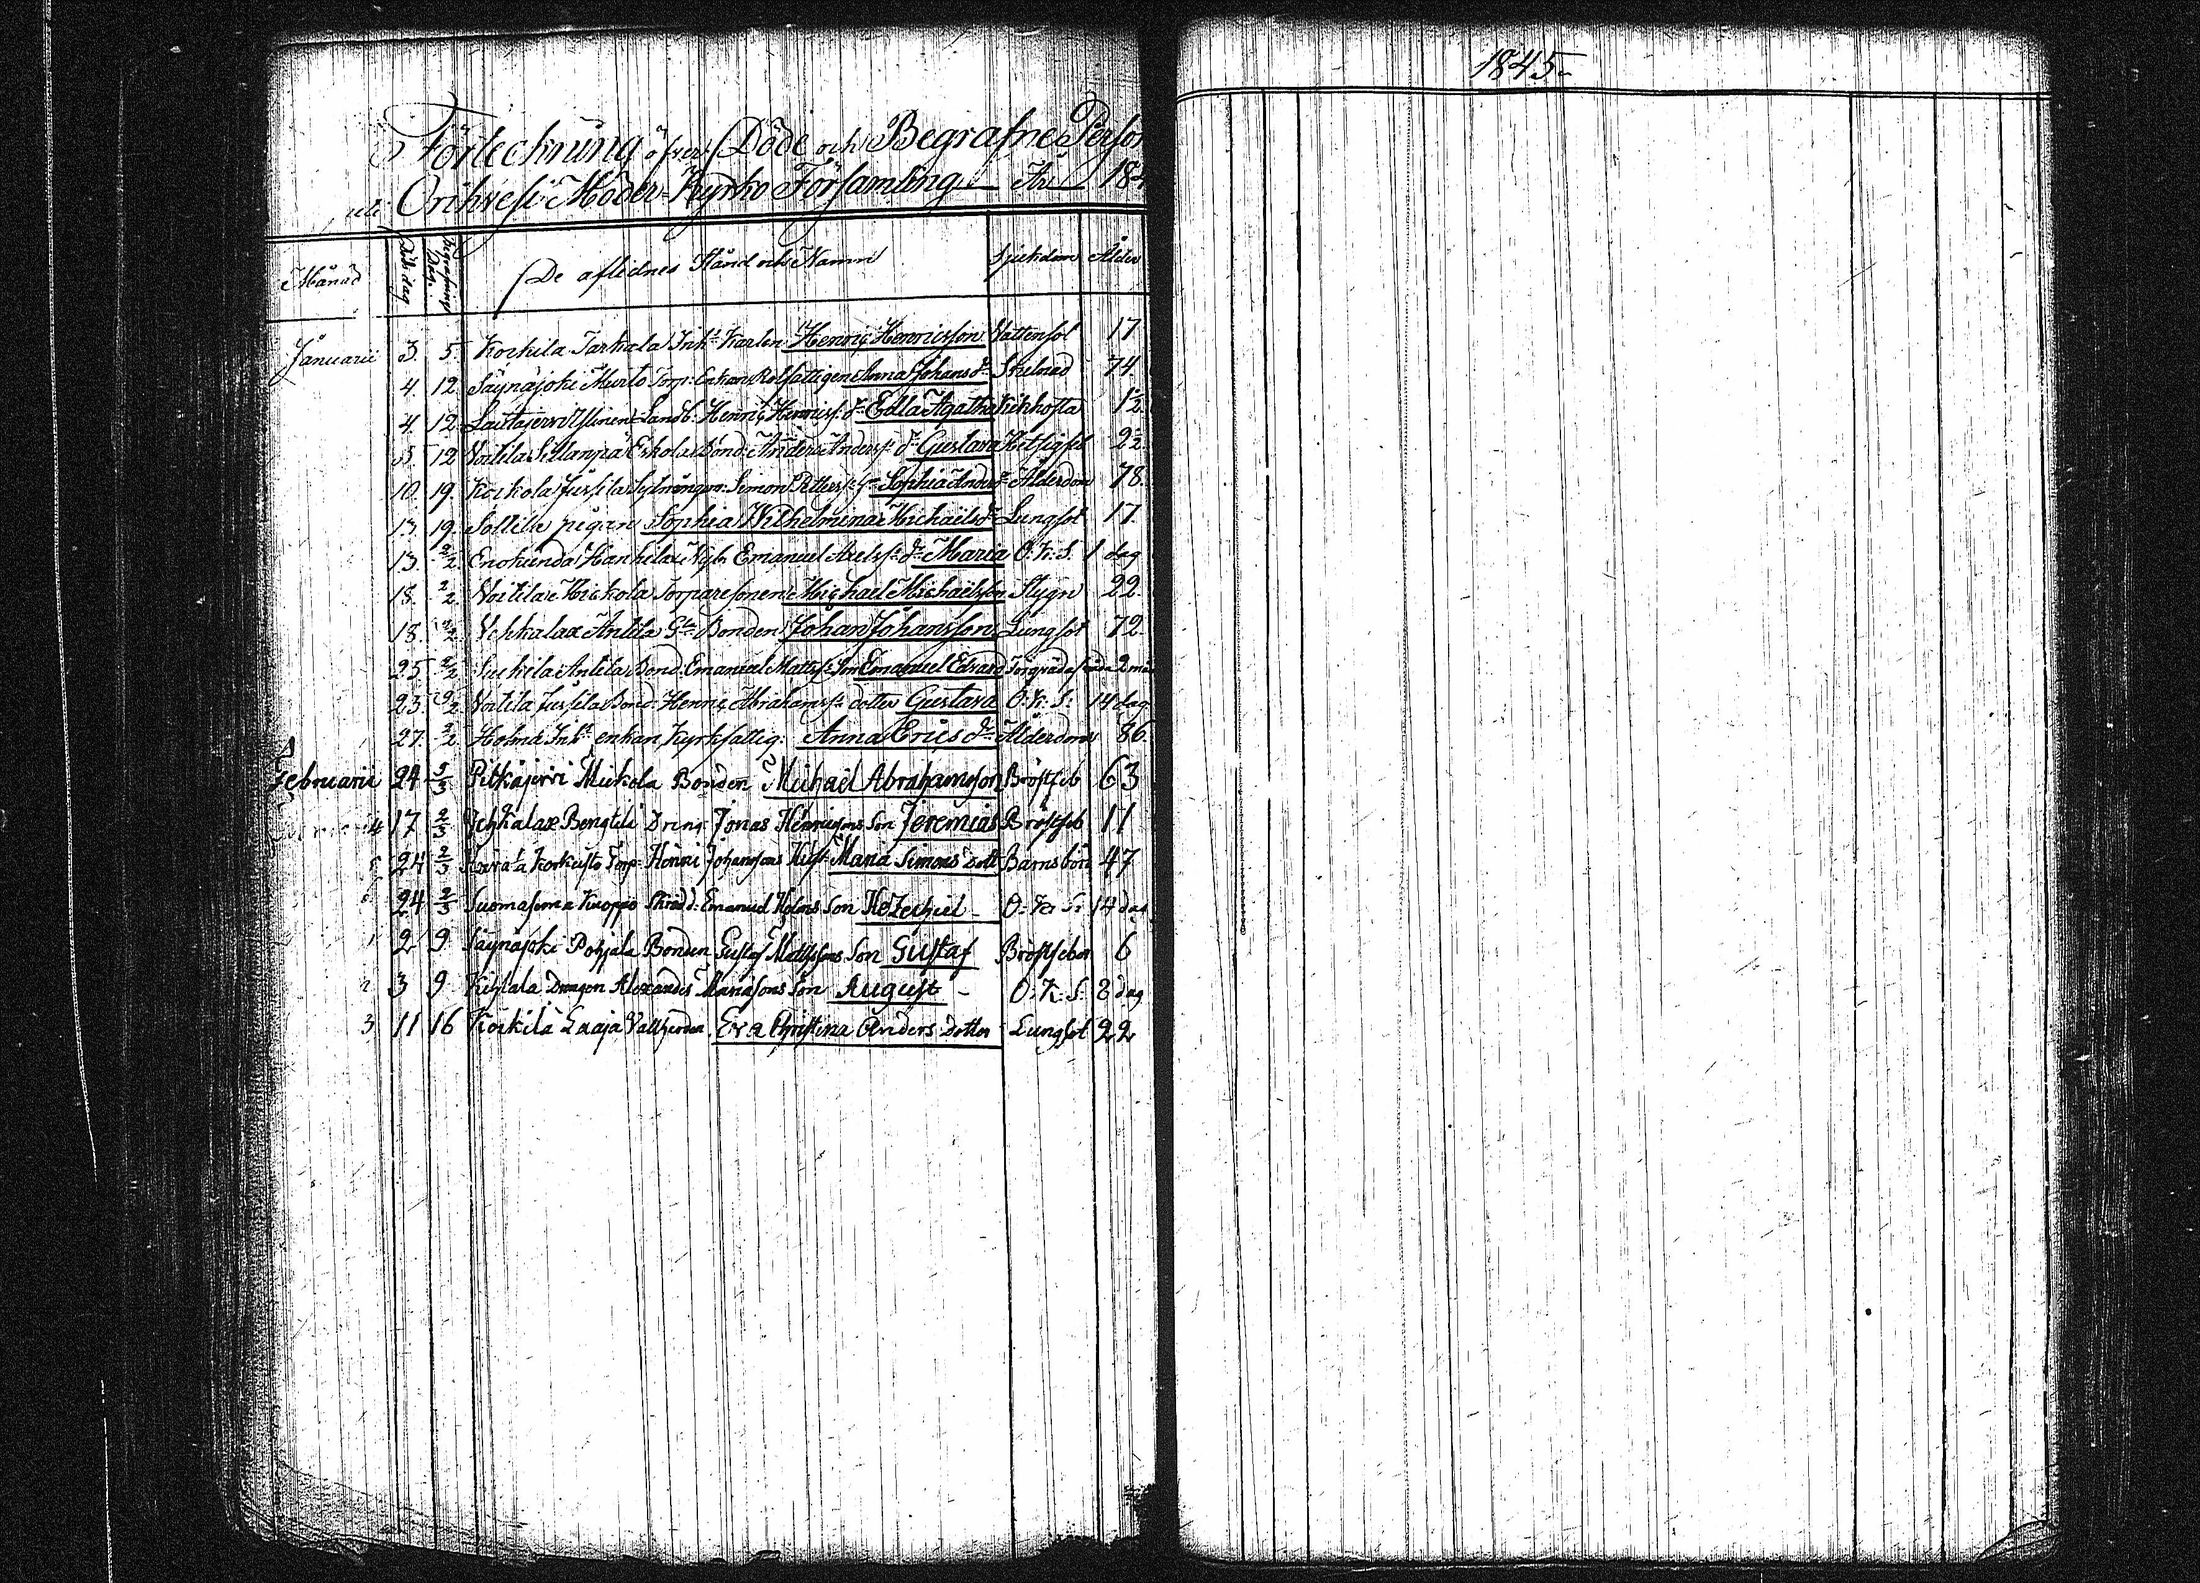 Förteckning öfver Döde och Begrafne Person
uti Orihvesi Moder-Kyrko Församling År 184
1845
Månad Döds dag Begrafnings Dag De aflidnes Stånd och Namn Sjukdom Ålder
Januarii 3. 5. Koikila Tarkala Inh: Karlen Henric Henricsson Vattensot 17
4. 12 Säynäjoki Murto Torp: Enkan Rotfattigen Anna Johans dr 74.
4. 12 Landb: Henric Henricss: dr Edla Agatha Kikhosta 1½
5. 12 Voitila Eskola Bond: Anders Anderss: dr Gustava Hetsigfeb 2½
10. 19. Koikola Jussila Simon Petterss: Sophia Anders dr Ålderdom 78.
13. 19. Sollila pigan Sophia Wilhelmina Michaels dr Lungsot 17.
13. 2/2 Enokunda Hankila Emanuel Axelss: dr Maria O: K: S. 1 dag
18. 2/2 Voitila Mickola Torparesonen Michael Michaelsson Stygn 22.
18. 2/2 Vehkalax Anlila Gla Bonden Johan Johansson Lungsot 72.
25. 2/2 Anlila Bond: Emanuel Mattss: Son Emanuel Edvard 2 mån
23. 2/2 Voitila Jussila Bond: Henric Abrahamss: dotter Gustava O: K: S: 14 dag
27. 2/2 Holma Inh: enkan Kyrkfattig: Anna Erics dr Ålderdom 86.
Februarii 24 5/3 Pitkäjervi Mickola Bonden Michael Abrahamsson Bröstfeb 63
4 17 2/3 Vehkalax Bengtili Dreng: Jonas Henricsons Son Jeremias Bröstfeb 11
5 24 2/3 Torp: Henric Johanssons Hust: Maria Simons Dott Barnsbörd 47
6 24 2/3 Suomasema Emanuel Holms Son Hezechiel O: K: S: 14 dag
1 2 9 Säynäjoki Pohjala Bonden Gustaf Mattssons Son Gustaf Bröstfeber 6
2 3 9 Kihlala Dragon Alexander Son August O: K: S: 8 dag
3 11 16 Koikila Laaja Vallherden Eva Christina Anders Dotter Lungsot 22